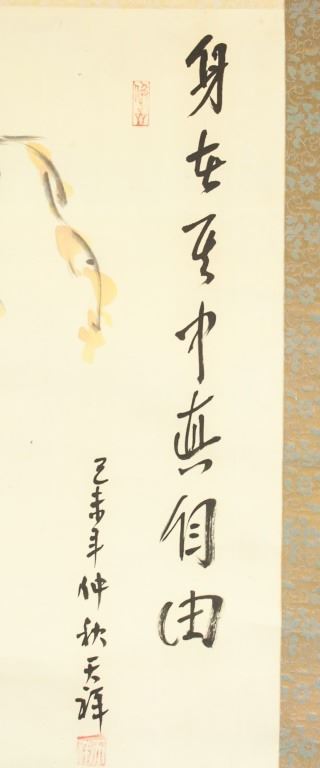 身在其中真自由
己未年仲秋天祥